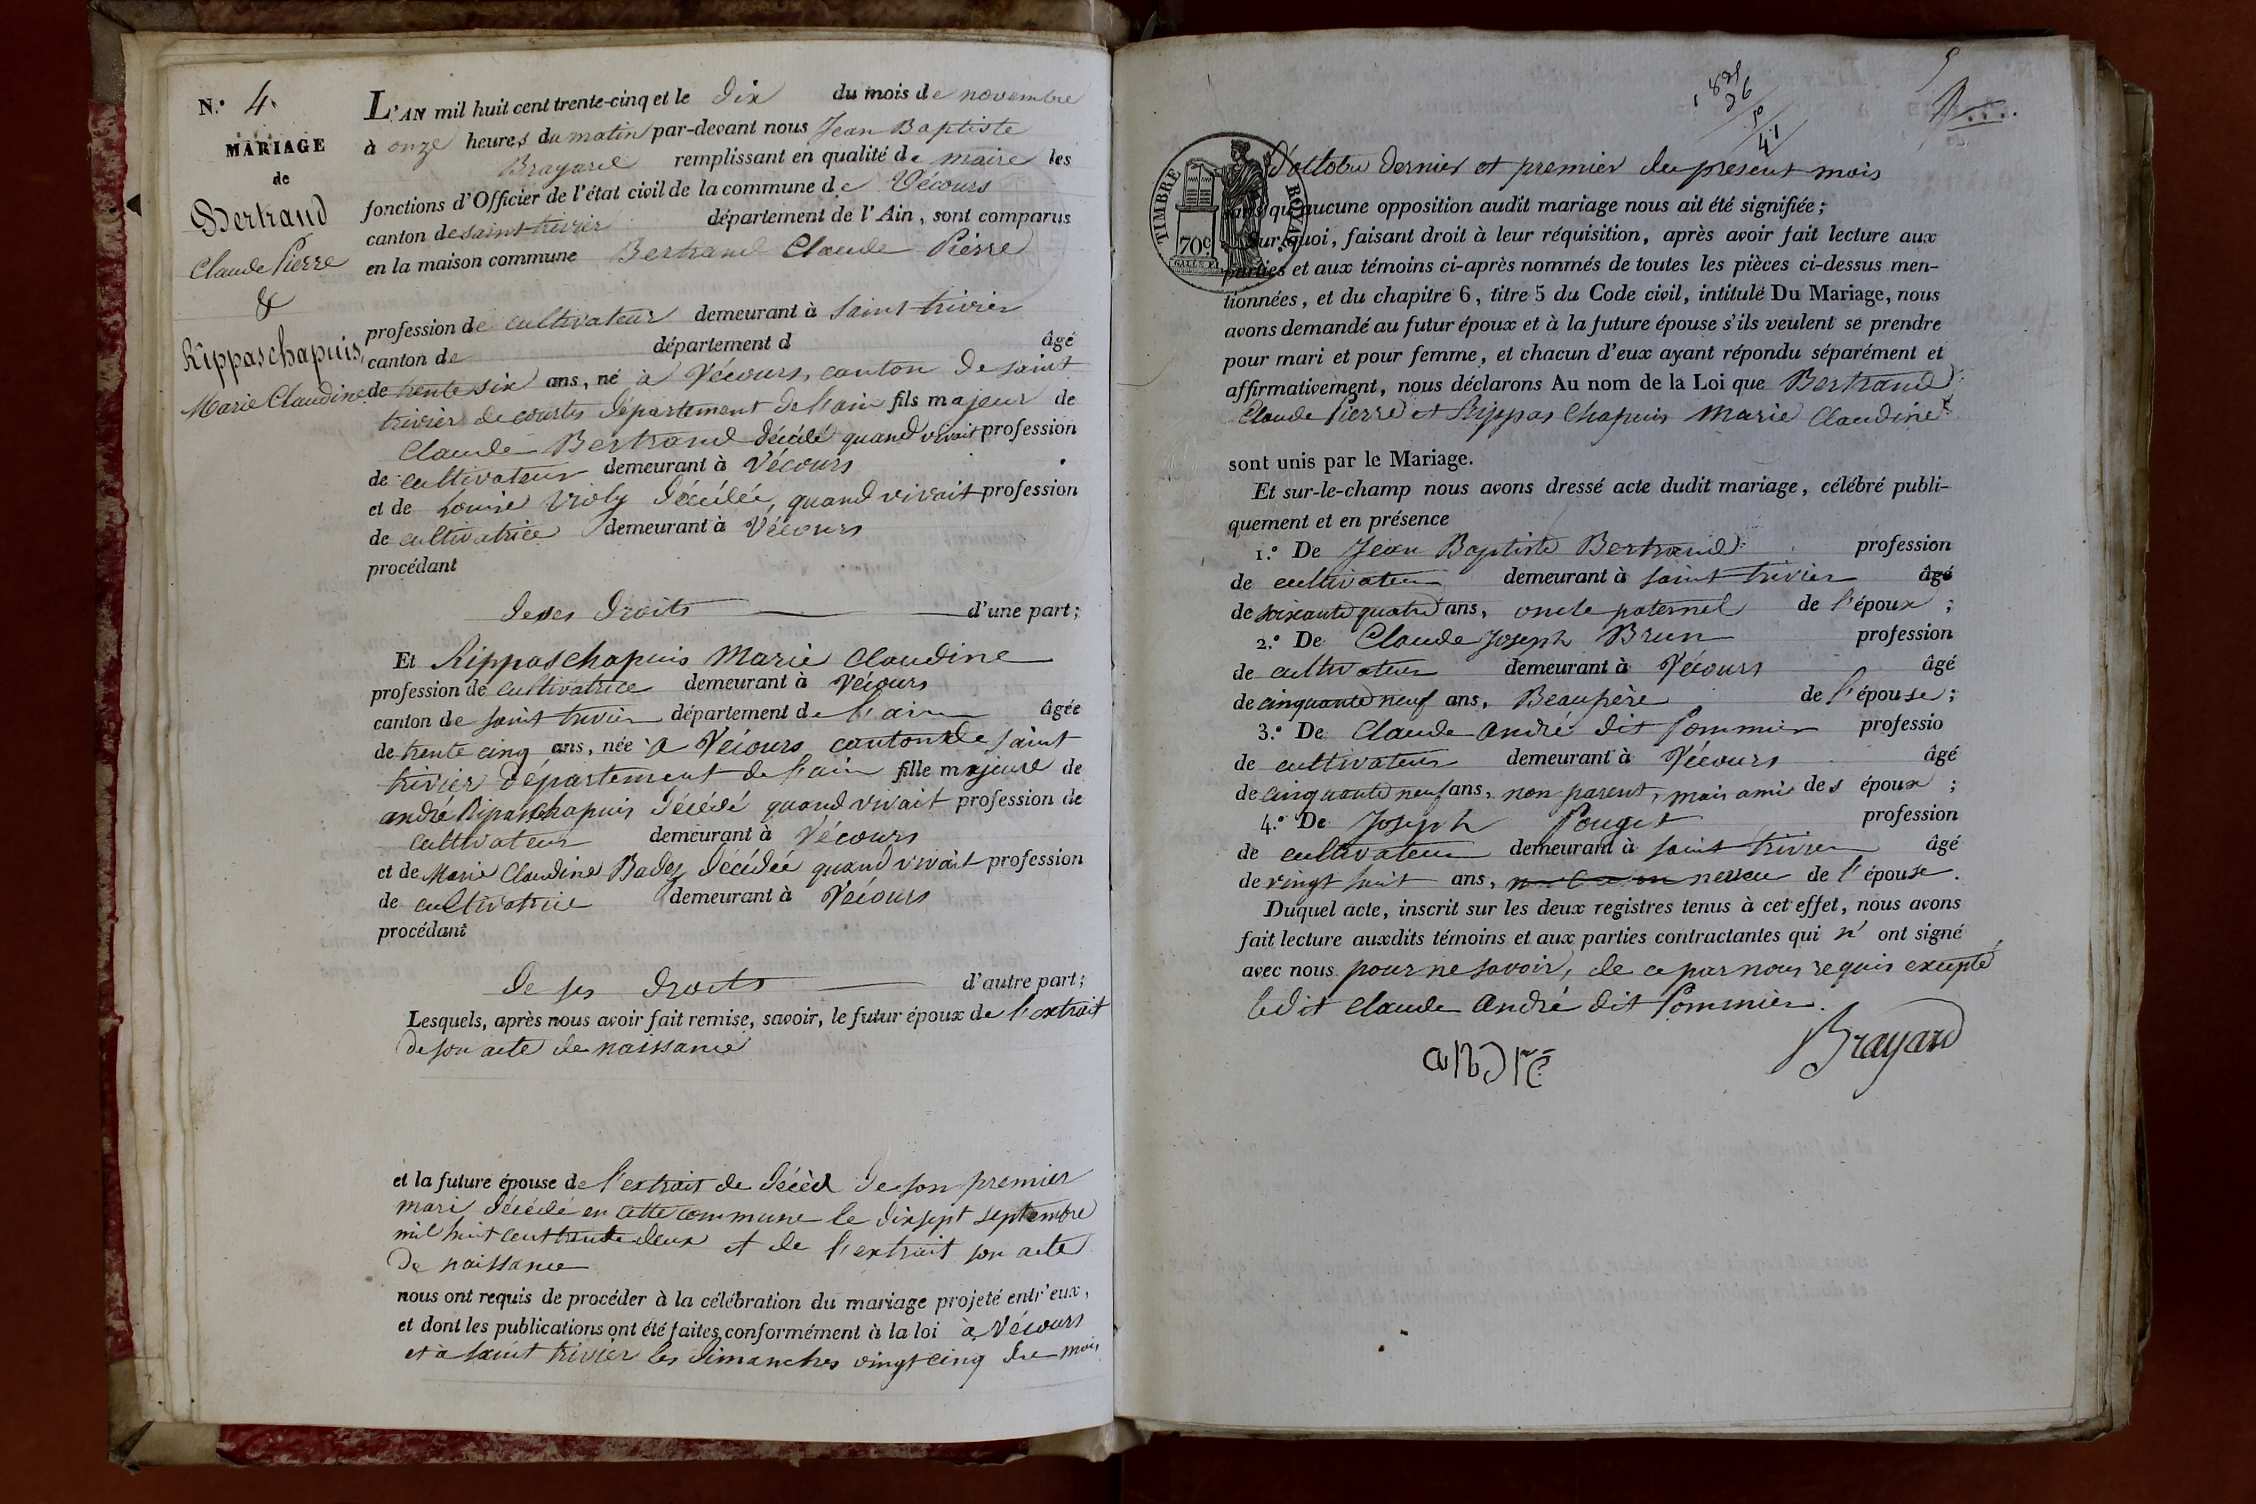 N.º 4.
MARIAGE
de
Bertrand
Claude Pierre
&
Rippaschapuis,
Marie Claudine
L'AN mil huit cent trente-cinq et le dix du mois de novembre
à onze heures du matin par-devant nous Jean Baptiste
Brayard remplissant en qualité de maire les
fonctions d'Officier de l'état civil de la commune de Vécours
canton de saint trivier département de l'Ain, sont comparus
en la maison commune Bertrand Claude Pierre
profession de cultivateur demeurant à saint trivier
canton de département d âgé
de trente six ans, né à Vécours, canton de saint
trivier de courtes département de l'ain fils majeur de
Claude Bertrand décédé quand vivait profession
de cultivateur demeurant à Vécours
et de Louise Violy décédée, quand vivait profession
de cultivatrice demeurant à Vécours
procédant
de ses droits d'une part;
Et Rippaschapuis Marie Claudine
profession de cultivatrice demeurant à Vécours
canton de saint trivier département de l'ain âgée
de trente cinq ans, née à Vécours canton de saint
trivier département de l'ain fille majeure de
andré Ripaschapuis décédé quand vivait profession de
cultivateur demeurant à Vécours
et de Marie Claudine Badez décédée quand vivait profession
de cultivatrice demeurant à Vécours
procédant
de ses droits d'autre part;
Lesquels, après nous avoir fait remise, savoir, le futur époux de l'extrait
de son acte de naissance
et la future épouse de l'extrait de décès de son premier
mari décédé en cette commune le dix sept septembre
mil huit cent trente deux et de l'extrait son acte
de naissance
nous ont requis de procéder à la célébration du mariage projeté entr'eux,
et dont les publications ont été faites conformément à la loi à Vécours
et à saint trivier les dimanches vingt cinq du mois
TIMBRE ROYAL
70c
d'octobre dernier et premier du présent mois
sans qu'aucune opposition audit mariage nous ait été signifiée;
Sur quoi, faisant droit à leur réquisition, après avoir fait lecture aux
parties et aux témoins ci-après nommés de toutes les pièces ci-dessus men-
tionnées, et du chapitre 6, titre 5 du Code civil, intitulé Du Mariage, nous
avons demandé au futur époux et à la future épouse s'ils veulent se prendre
pour mari et pour femme, et chacun d'eux ayant répondu séparément et
affirmativement, nous déclarons Au nom de la Loi que Bertrand
Claude Pierre et Rippas Chapuis Marie Claudine
sont unis par le Mariage.
Et sur-le-champ nous avons dressé acte dudit mariage, célébré publi-
quement et en présence
1.º De Jean Baptiste Bertrand profession
de cultivateur demeurant à saint trivier âgé
de soixante quatre ans, oncle paternel de l'époux;
2.º De Claude Joseph Brun profession
de cultivateur demeurant à Vécours âgé
de cinquante neuf ans, Beaupère de l'épouse;
3.º De Claude andré dit Pommier professio
de cultivateur demeurant à Vécours âgé
de cinquante neuf ans, non parent, mais ami des époux;
4.º De Joseph Pouget profession
de cultivateur demeurant à saint trivier âgé
de vingt huit ans, neveu de l'épouse.
Duquel acte, inscrit sur les deux registres tenus à cet effet, nous avons
fait lecture auxdits témoins et aux parties contractantes qui n'ont signé
avec nous pour ne savoir, de ce par nous requis excepté
ledit Claude andré dit Pommier.
Brayard